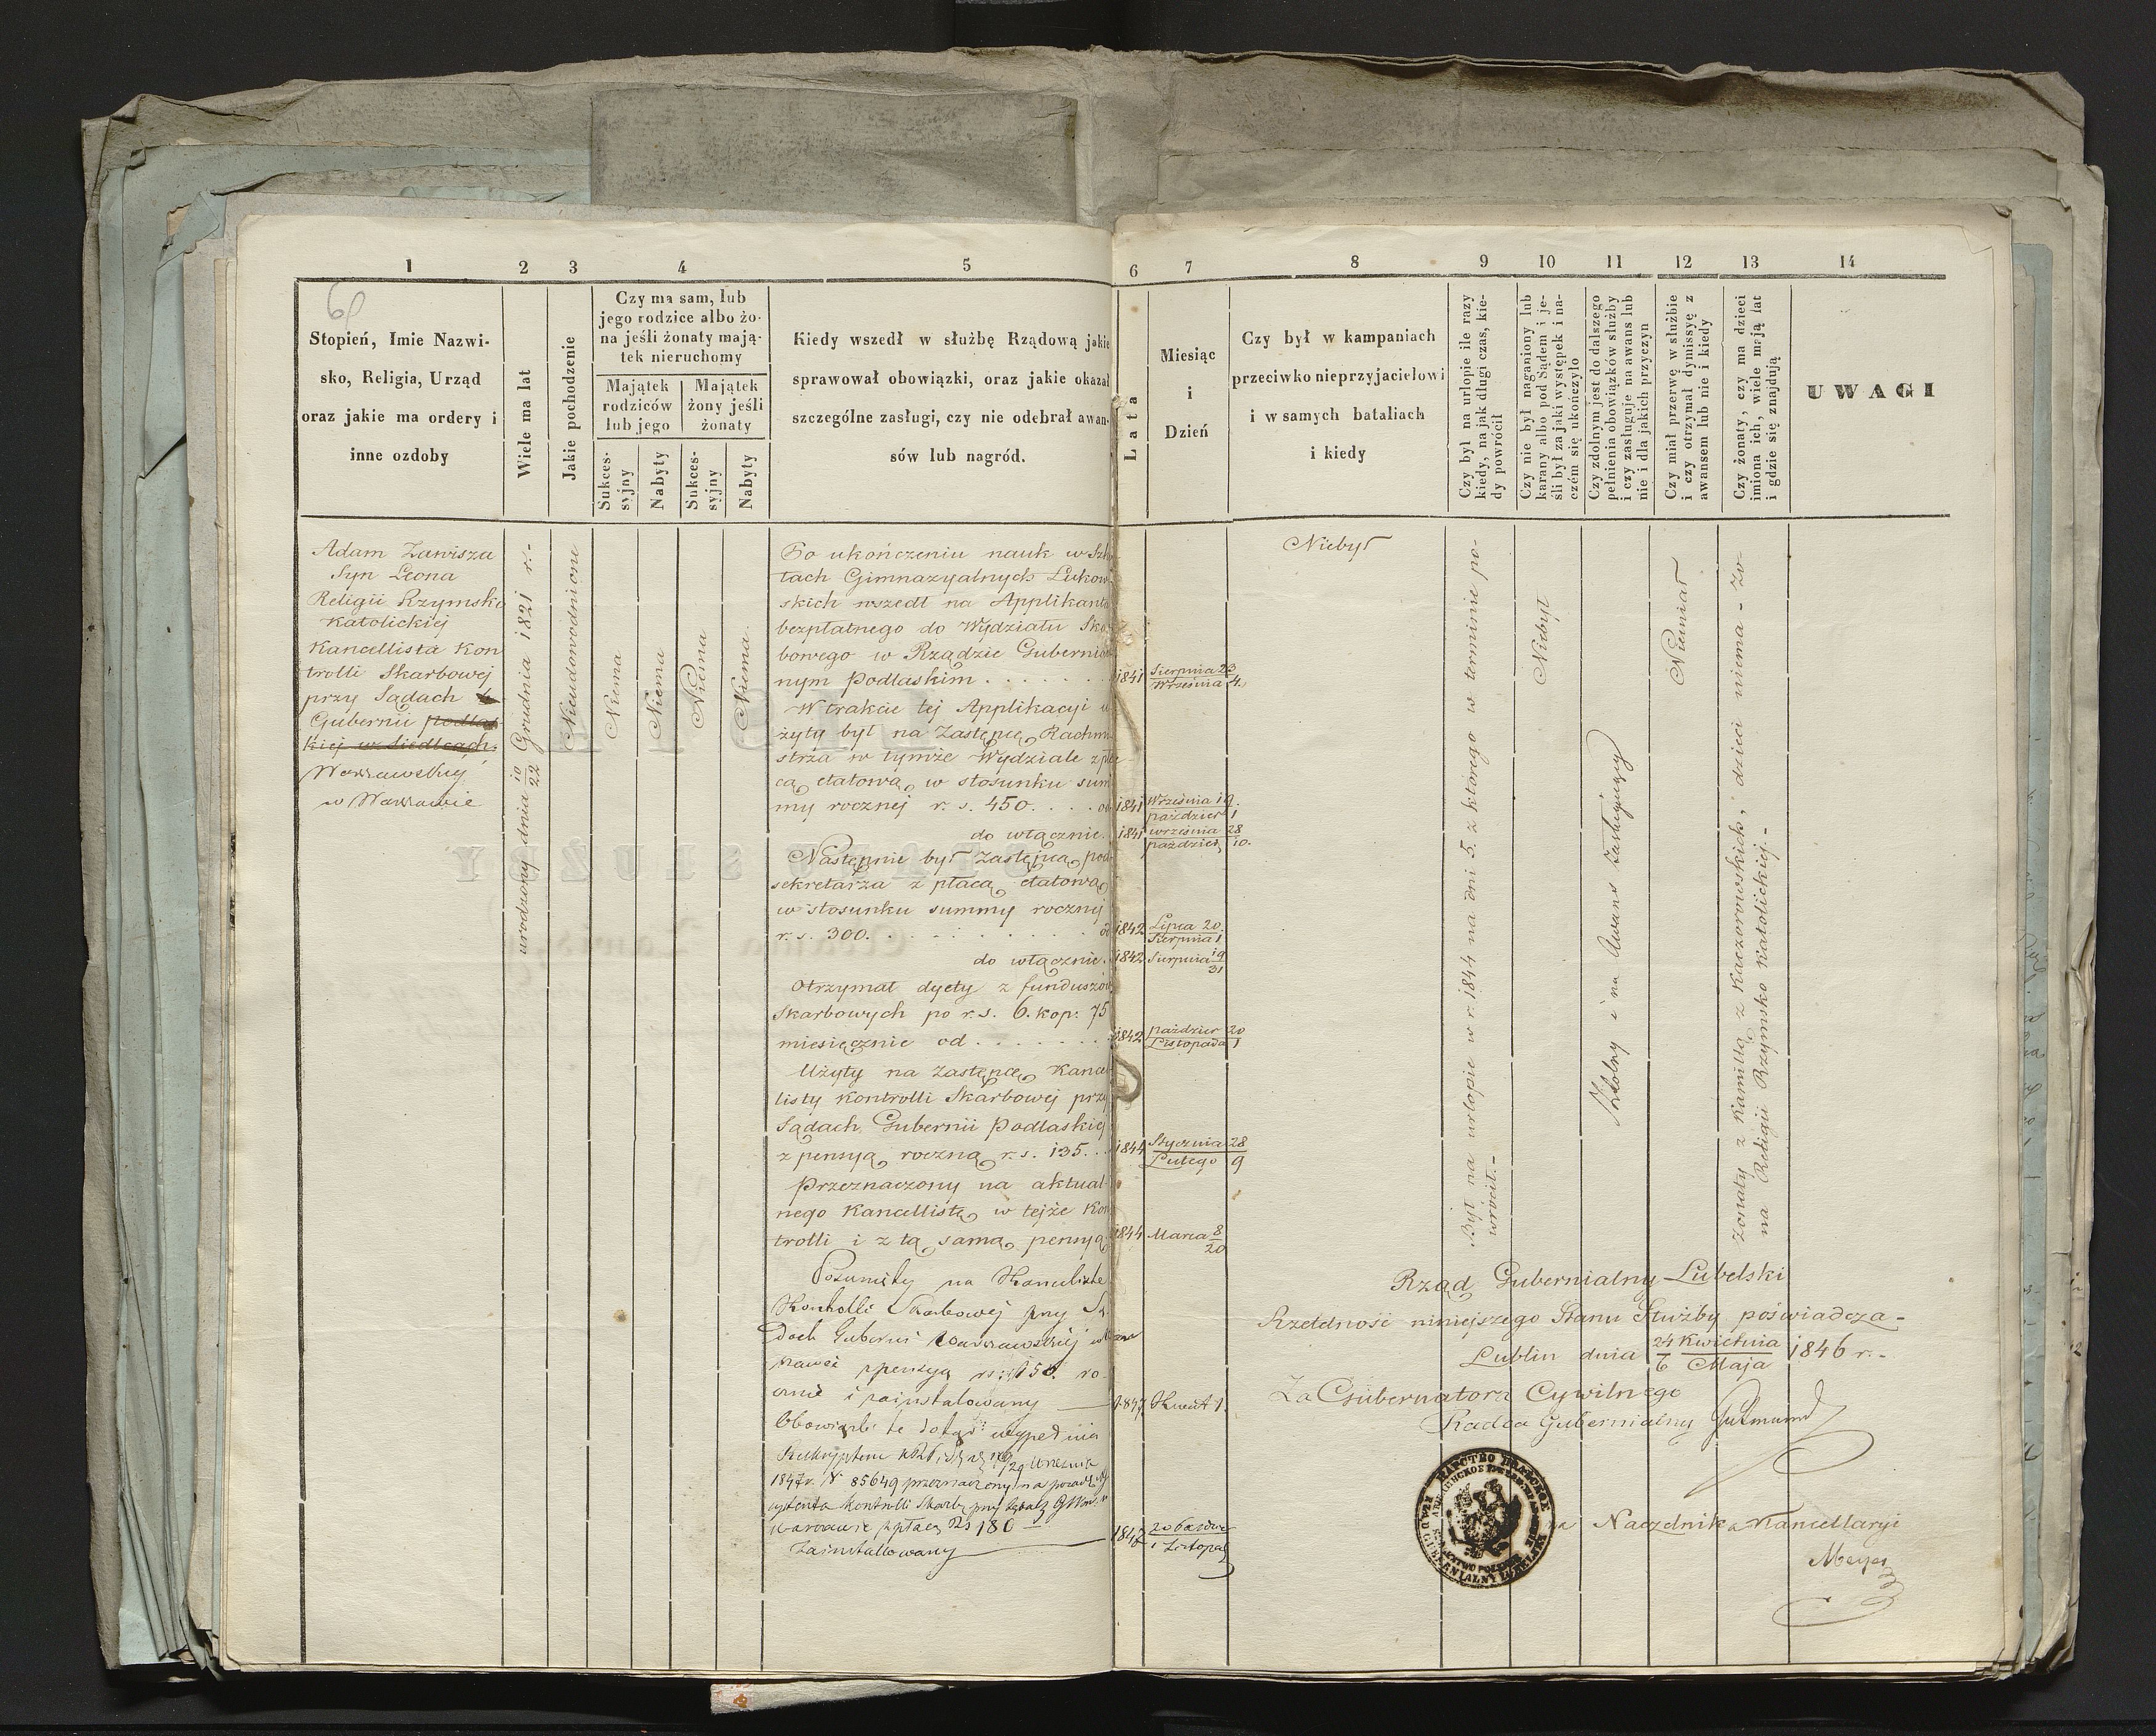 1 2 3 4 5 6 7 8 9 10 11 12 13 14
Stopień, Imie Nazwi-
sko, Religia, Urząd
oraz jakie ma ordery i
inne ozdoby
Wiele ma lat
Jakie pochodzenie
Czy ma sam, lub
jego rodzice albo żo-
na jeśli żonaty mają-
tek nieruchomy
Majątek
rodziców
lub jego
Majątek
żony jeśli
żonaty
Sukces-
syjny
Nabyty
Sukces-
syjny
Nabyty
Kiedy wszedł w służbę Rządową jakie
sprawował obowiązki, oraz jakie okazał
szczególne zasługi, czy nie odebrał awan-
sów lub nagród.
Lata
Miesiąc
i
Dzień
Czy był w kampaniach
przeciwko nieprzyjacielowi
i w samych bataliach
i kiedy
Czy był na urlopie ile razy
kiedy, na jak długi czas, kie-
dy powrócił
Czy nie był naganiony lub
karany albo pod Sądem i je-
śli był za jaki występek i na-
czém się ukończyło
Czy zdolnym jest do dalszego
pełnienia obowiązków służby
i czy zasługuje na awans lub
nie i dla jakich przyczyn
Czy miał przerwę w służbie
i czy otrzymał dymissyę z
awansem lub nie i kiedy
Czy żonaty, czy ma dzieci
imiona ich, wiele mają lat
i gdzie się znajdują
UWAGI
Adam Zawisza
Syn Leona
Religii Rzymsko
Katolickiej
Kancellista Kon
trolli Skarbowej
przy Sądach
Gubernii podlas
kiej w Siedlcach.
Warszawskiej
w Warszawie
urodzony dnia 10/22 Grudnia 1821 r.-
Nieudowodnione
Niema
Niema
Niema
Niema
Po ukończeniu nauk w Szko
łach Gimnazyalnych Łukow
skich wszedł na Applikanta
bezpłatnego do Wydziału Skar
bowego w Rządzie Gubernial
nym Podlaskim . . . . . . .
1841 Sierpnia 23
Września 4.
W trakcie tej Applikacyi u
żyty był na Zastępcę Rachmi
strza w tymże Wydziale z pła
cą etatową w stosunku sum
my rocznej r. s. 450. . . . od
1841 Września 19.
paździer 1
do włącznie.
1841 września 28
paździer. 10.
Następnie był Zastępcą pod
sekretarza z płacą etatową
w stosunku summy rocznej
r. s. 300. . . . . . . . . . . od
1842 Lipca 20
Sierpnia 1
do włącznie.
1842 Sierpnia 19
31
Otrzymał dyety z funduszów
Skarbowych po r. s. 6. kop: 75
miesięcznie od . . . . . . .
1842 paździer 20
Listopada 1
Użyty na Zastępcę Kancel
listy Kontrolli Skarbowej przy
Sądach Gubernii Podlaskiej
z pensyą roczną r. s. 135. . .
1844 Stycznia 28
Lutego 9
Przeznaczony na aktual
nego Kancellistę w tejże Kon
trolli i z tą samą pensyą
1844 Marca 8
20
Posunięty na Kancelistę
Kontolli Skarbowej przy Są
dach Gubernii Warszawskiej w War
szawie z pensyą rs: 150. ro-
cznie i zainstalowany
1847 Kwiet 1
Obowiązki te dotąd wypełnia
Reskryptem
1847 r. N 85649 przeznaczony na posadę
Kontrolli Skarb. przy Sądach
Warszawie z płacą Rs 180
Zainstallowany
1847 20
1 Listopad
Niebył
Był na urlopie w r. 1844 na dni 5. z którego w terminie po-
wrócił.-
Niebył
Zdolny i na Awans zasługujący
Niemiał
Żonaty z Kamillą z Kaczorowskich, dzieci niema - Żo-
na Religii Rzymsko Katolickiej.-
Rząd Gubernialny Lubelski
Rzetelność niniejszego Stanu Służby poświadcza-
Lublin dnia 24 Kwietnia
6 Maja 1846 r.-
Za Gubernatora Cywilnego
Radca Gubernialny
Naczelnika Kancellaryi
Meyer